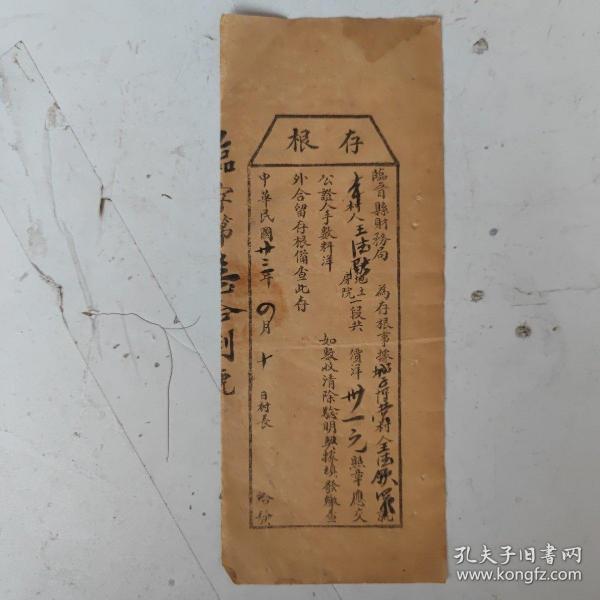 存根
臨晉縣財務局 為存根事據 村人王
本村人王 地土房院一段共 價洋卅一元照章應交
公證人手數料洋 如數收清除驗明 據填發繳查
外合留存根備查此存
中華民國廿三年 月十日村長 給訖
臨字第 號
孔夫子旧书网
www.kongfz.com